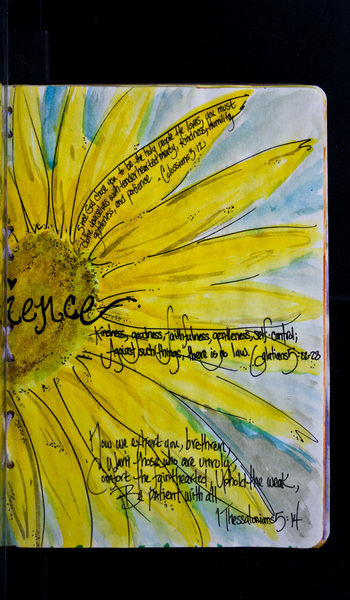 Since God chose you to be the holy people He loves, you must
clothe yourselves with tenderhearted mercy, kindness, humility,
gentleness, and patience. - Colossians 3:12
ience
Kindness, goodness, faithfulness, gentleness, self-control;
Against such things, there is no law. Galatians 5:22-23
Now we exhort you, brethren,
Warn those who are unruly,
Comfort the fainthearted, Uphold the weak,
Be patient with all.
1 Thessalonians 5:14